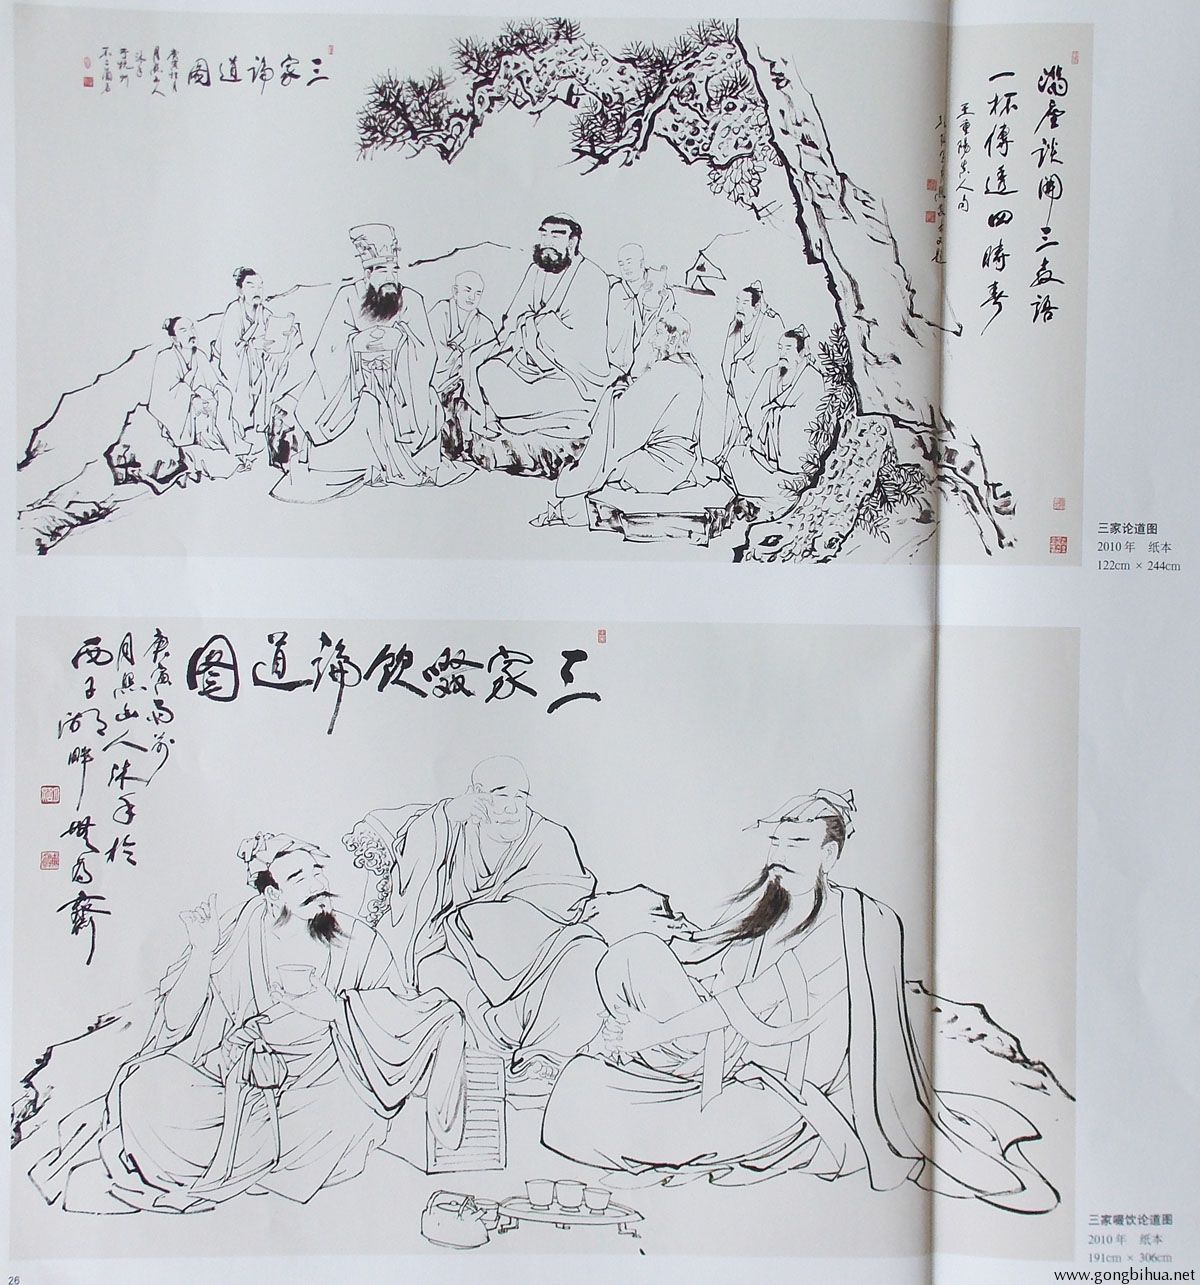 三家論道圖
滿座談開三教語
一杯傳透四時春
王重陽真人句
三家论道图
2010 年 纸本
122cm × 244cm
三家啜飲論道圖
庚寅雨前
月照山人沐手於
西子湖畔
三家啜饮论道图
2010 年 纸本
191cm × 306cm
26
www.gongbihua.net